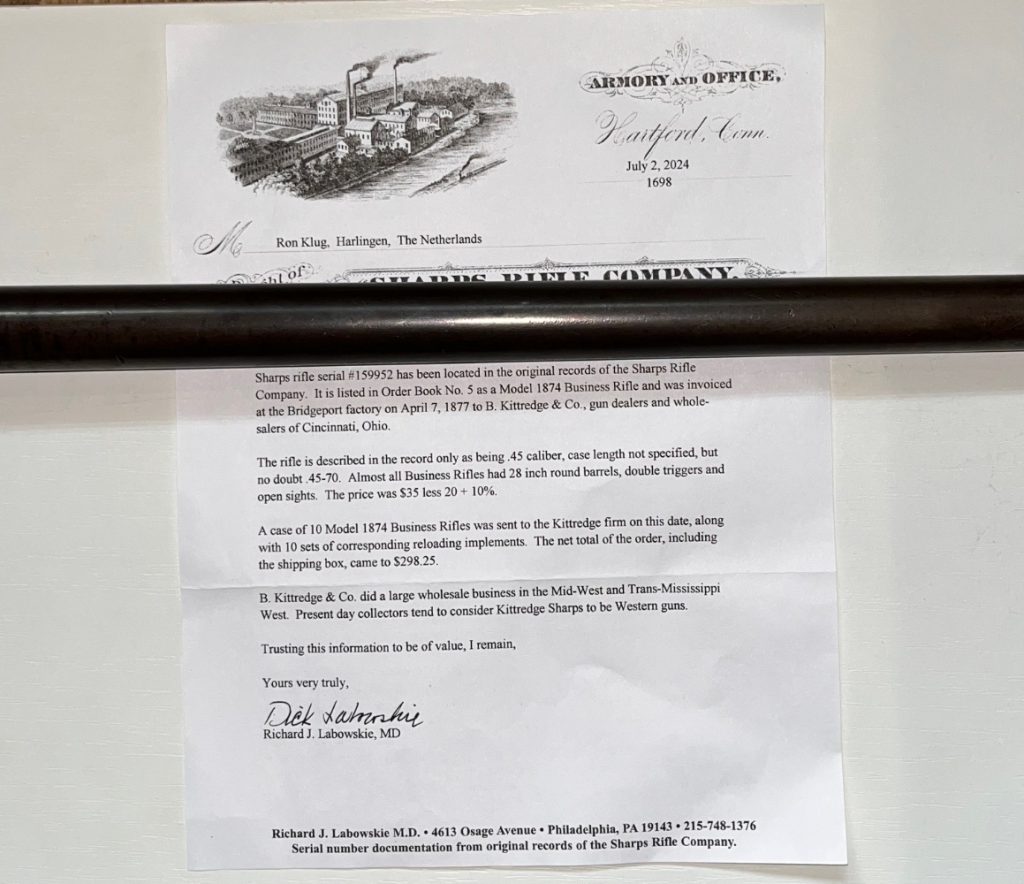 ARMORY AND OFFICE,
Hartford, Conn.
July 2, 2024
1698
M
Ron Klug, Harlingen, The Netherlands
of
SHARPS RIFLE COMPANY,
Sharps rifle serial #159952 has been located in the original records of the Sharps Rifle
Company. It is listed in Order Book No. 5 as a Model 1874 Business Rifle and was invoiced
at the Bridgeport factory on April 7, 1877 to B. Kittredge & Co., gun dealers and whole-
salers of Cincinnati, Ohio.
The rifle is described in the record only as being .45 caliber, case length not specified, but
no doubt .45-70. Almost all Business Rifles had 28 inch round barrels, double triggers and
open sights. The price was $35 less 20 + 10%.
A case of 10 Model 1874 Business Rifles was sent to the Kittredge firm on this date, along
with 10 sets of corresponding reloading implements. The net total of the order, including
the shipping box, came to $298.25.
B. Kittredge & Co. did a large wholesale business in the Mid-West and Trans-Mississippi
West. Present day collectors tend to consider Kittredge Sharps to be Western guns.
Trusting this information to be of value, I remain,
Yours very truly,
Dick Labowskie
Richard J. Labowskie, MD
Richard J. Labowskie M.D. • 4613 Osage Avenue • Philadelphia, PA 19143 • 215-748-1376
Serial number documentation from original records of the Sharps Rifle Company.